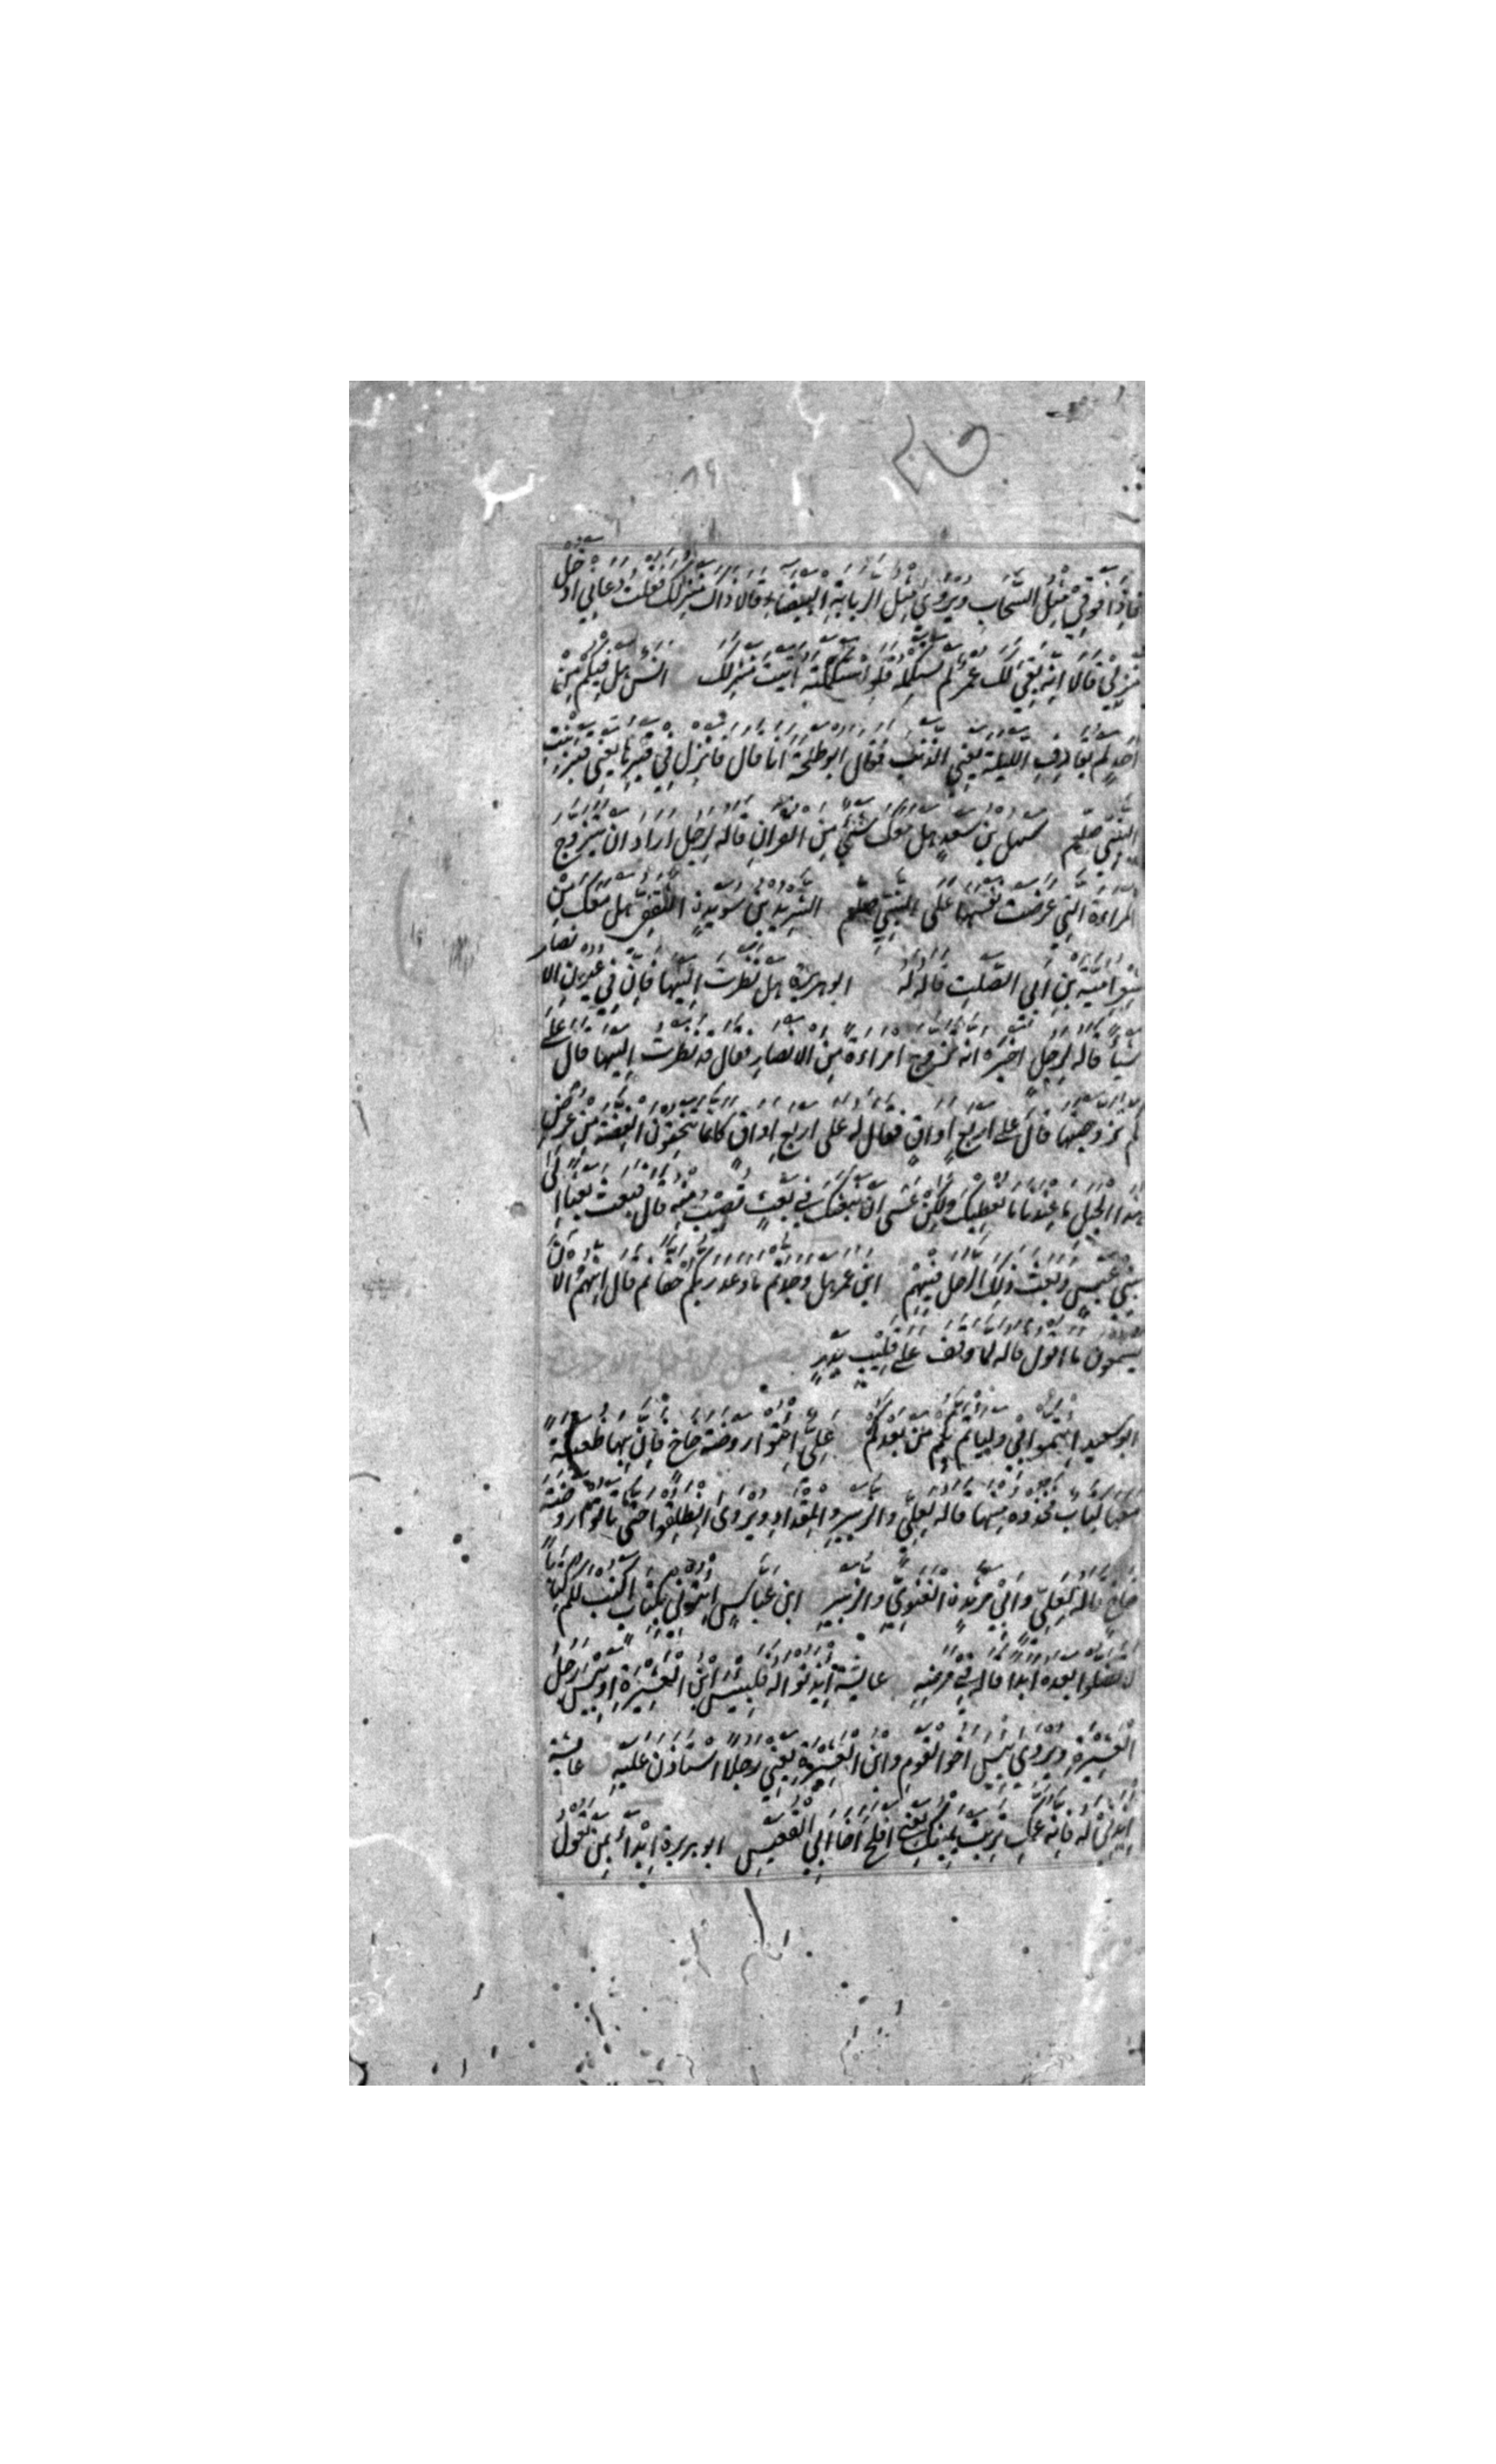 فاذا فوقي مثل السحاب ويروى مثل الربابة البيضاء قالا ذاك منزلك فقلت دعاني ادخل
منزلي قالا انه بقي لك عمر لم تستكمله فلو استكملته اتيت منزلك انس هل فيكم من
احد لم يقارف الليلة يعني الذنب فقال ابو طلحة انا قال فانزل في قبرها يعني قبر بنت
النبي صلعم سهل بن سعد هل معك شئ من القران قاله لرجل اراد ان يتزوج
المراءة التي عرضت نفسها على النبي صلعم الشريد بن سويدن الثقفي هل معك من
شعر امية بن ابي الصلت قاله له ابو هريرة هل نظرت اليها فان في عيون الانصار
شيأ قاله لرجل اخبره انه تزوج امراءة من الانصار فقال قد نظرت اليها قال على
كم تزوجتها قال على اربع اواق فقال له على اربع اواق كانما تنحتون الفضة من عرض
هذا الجبل ما عندنا ما نعطيك ولكن عسى ان نبعثك في بعث تصيب منه قال فبعث بعثا الى
بني عبس وبعث ذلك الرجل فيهم ابن عمر هل وجدتم ما وعد ربكم حقا ثم قال انهم الان
يسمعون ما اقول قاله لما وقف على قليب بدر
ابو سعيد ايتموا بي وليأتم بكم من بعدكم علي ائتوا روضة خاخ فان بها ظعينة
معها كتاب فخذوه منها قاله لعلي والزبير والمقداد ويروى انطلقوا حتى تأتوا روضة
خاخ قاله لعلي وابي مرثدن الغنوي والزبير ابن عباس ايتوني بكتاب اكتب لكم كتابا
لن تضلوا بعده ابدا قاله في مرضه عايشة ايذنوا له فلبيس ابن العشيرة او بيس رجل
العشيرة ويروى بيس اخو القوم وابن العشيرة يعني رجلا استأذن عليه عايشة
ايذني له فانه عمك تربت يمينك يعني افلح اخا ابي القعيس ابو هريرة ابدأ بمن تعول